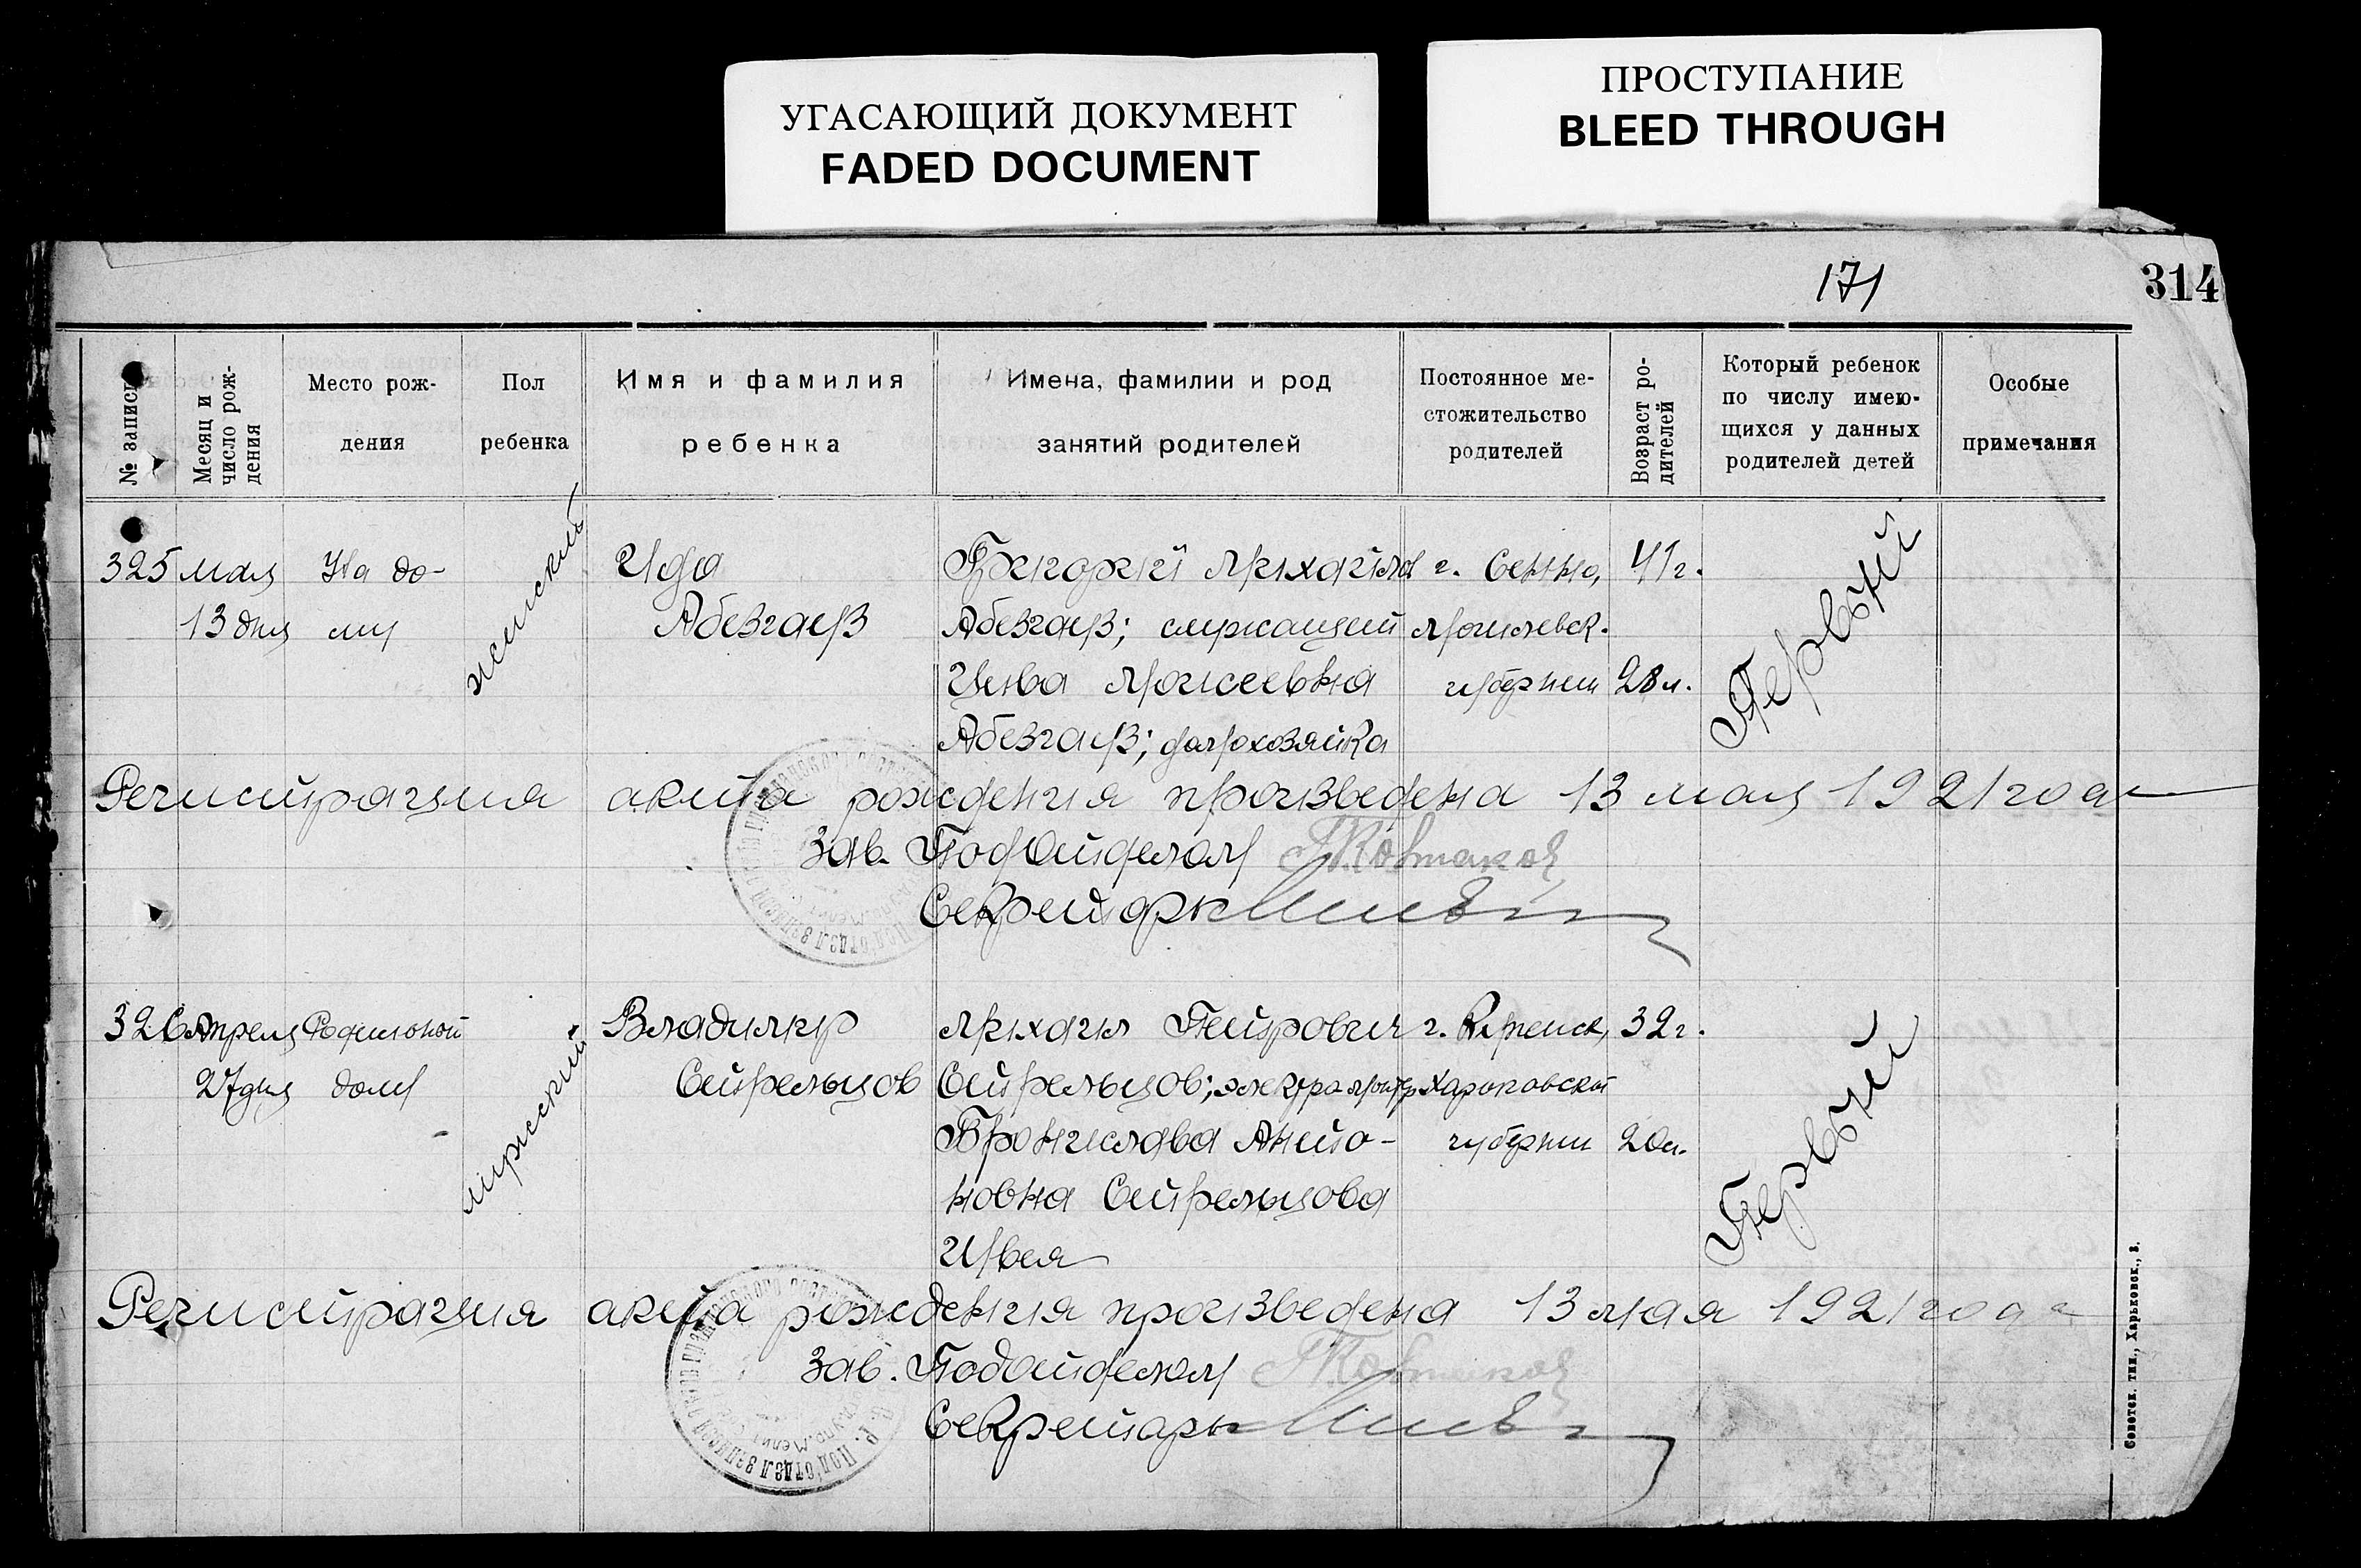 УГАСАЮЩИЙ ДОКУМЕНТ
FADED DOCUMENT
ПРОСТУПАНИЕ
BLEED THROUGH
171
314
№ записи
Месяц и число рождения
Место рождения
Пол ребенка
Имя и фамилия ребенка
Имена, фамилии и род занятий родителей
Постоянное местожительство родителей
Возраст родителей
Который ребенок по числу имеющихся у данных родителей детей
Особые примечания
325 мая На до- женский Ида Григорий Михайлов г. Сенно, 41 г. Первый
13 дня му Абезгауз Абезгауз; служащий Могилевск.
Цива Моисеевна губернии 28 л.
Абезгауз; домохозяйка
Регистрация акта рождения произведена 13 мая 1921 года
Зав. Подотделом
Секретарь
326 Апреля Родильной мужеский Владимир Михаил Петрович г. Купенск, 32 г. Первый
27 дня дому Стрельцов Стрельцов; электромонтер Харьковской
Бронислава Анто- губернии 20 л.
новна Стрельцова
Швея
Регистрация акта рождения произведена 13 мая 1921 года
Зав. Подотделом
Секретарь
Советск. тип., Харьковск., 3.